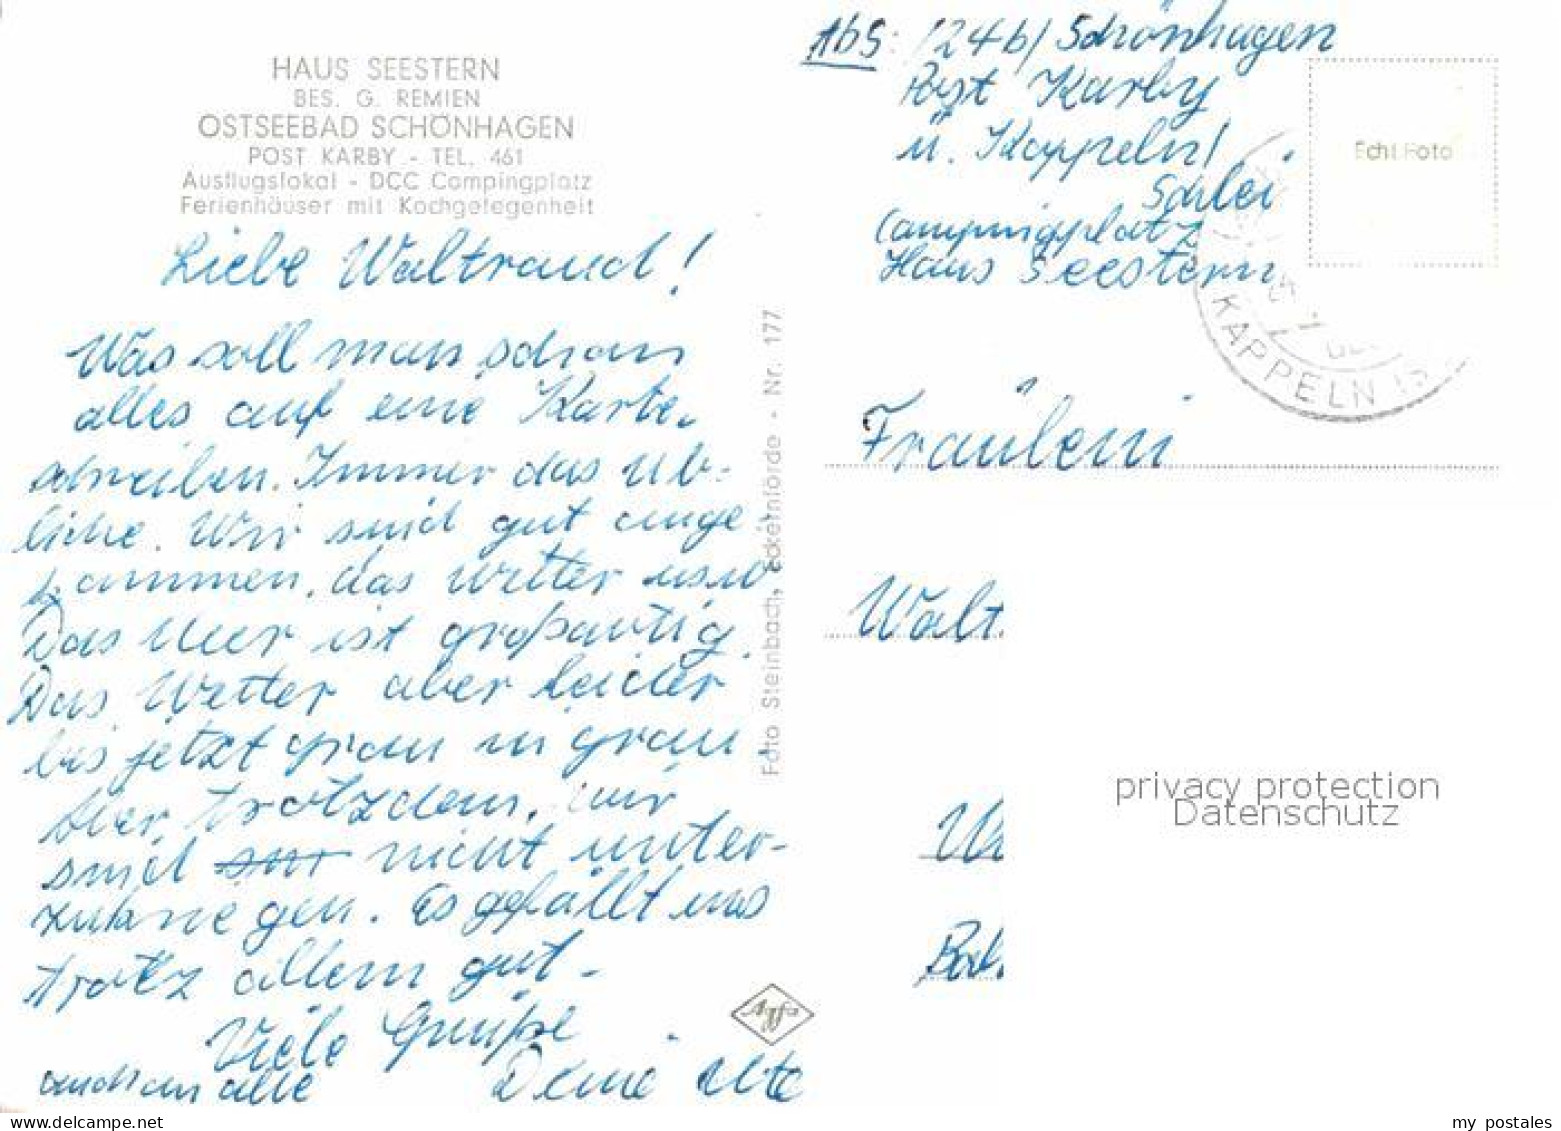 HAUS SEESTERN
BES. G. REMIEN
OSTSEEBAD SCHÖNHAGEN
POST KARBY - TEL. 461
Ausflugslokal - DCC Campingplatz
Ferienhäuser mit Kochgelegenheit
Liebe Waltraud!
Was soll man schon
alles auf eine Karte
schreiben. Immer das üb-
liche. Wir sind gut ange
kommen, das Wetter usw
Das Meer ist großartig.
Das Wetter aber leider
bis jetzt grau in grau
Aber trotzdem, wir
sind nicht unter-
zukriegen. Es gefällt uns
trotz allem gut-
Viele Grüße
auch an alle Deine Ute
Foto Steinbach, Eckernförde - Nr. 177
Agfa
Abs: (24b) Schönhagen
Post Karby
ü. Kappeln/
Schlei
Campingplatz
Haus Seestern
Echt Foto
KAPPELN
Fräulein
Walt.
privacy protection
Datenschutz
my postales